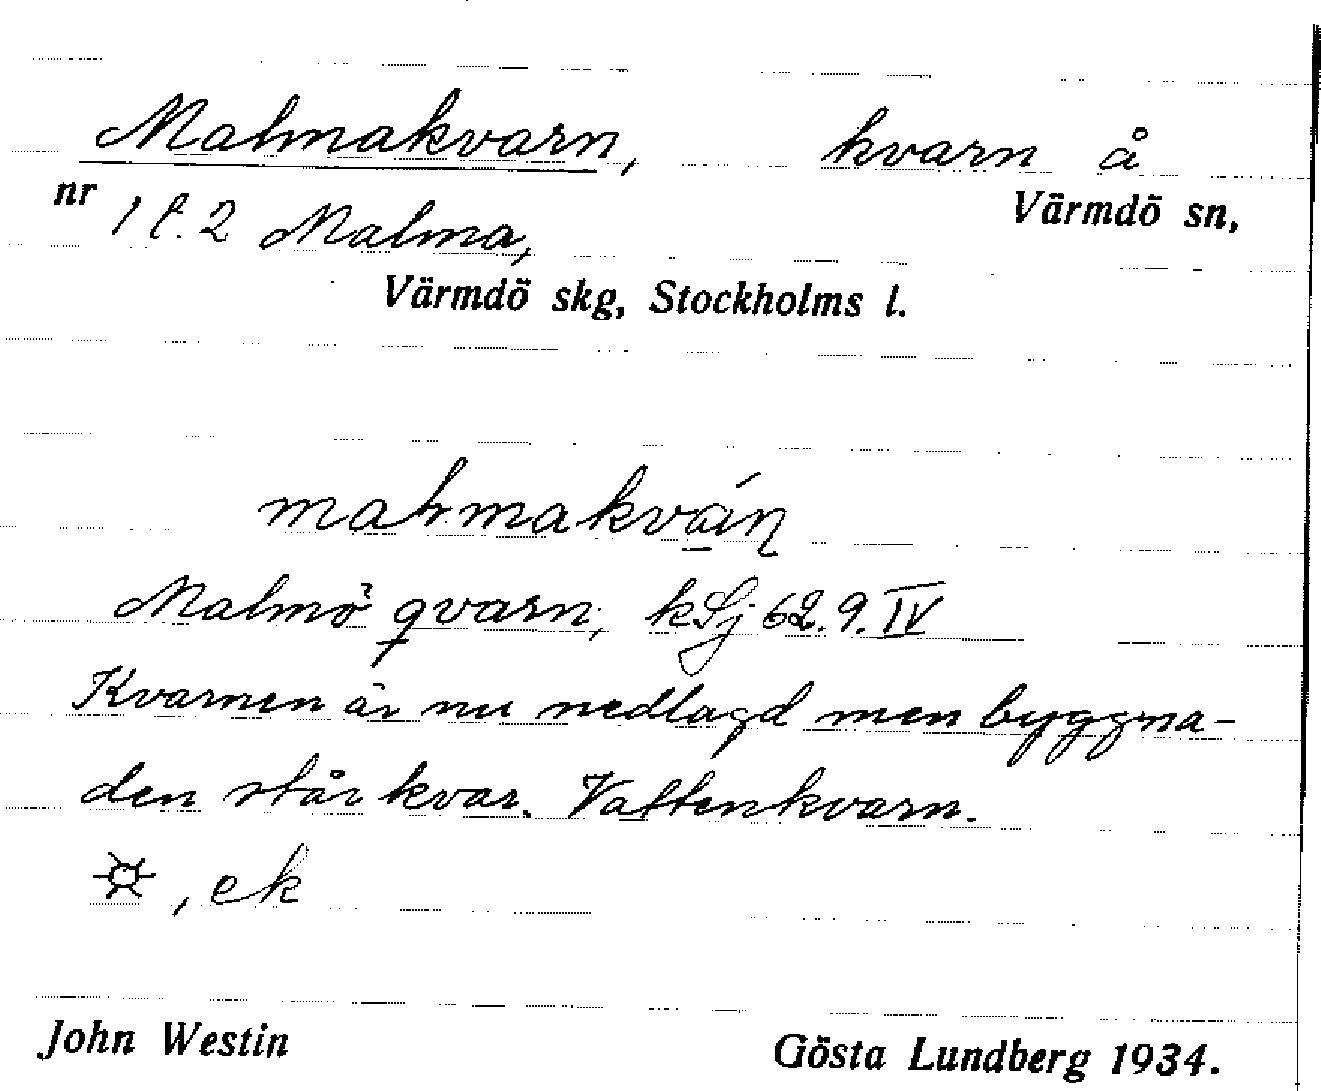 Malmakvarn, kvarn å
nr 1 l. 2 Malma, Värmdö sn,
Värmdö skg, Stockholms l.
Malmö qvarn; kSj 62.9.IV
Kvarnen är nu nedlagd men byggna-
den står kvar. Vattenkvarn.
, ek
John Westin Gösta Lundberg 1934.